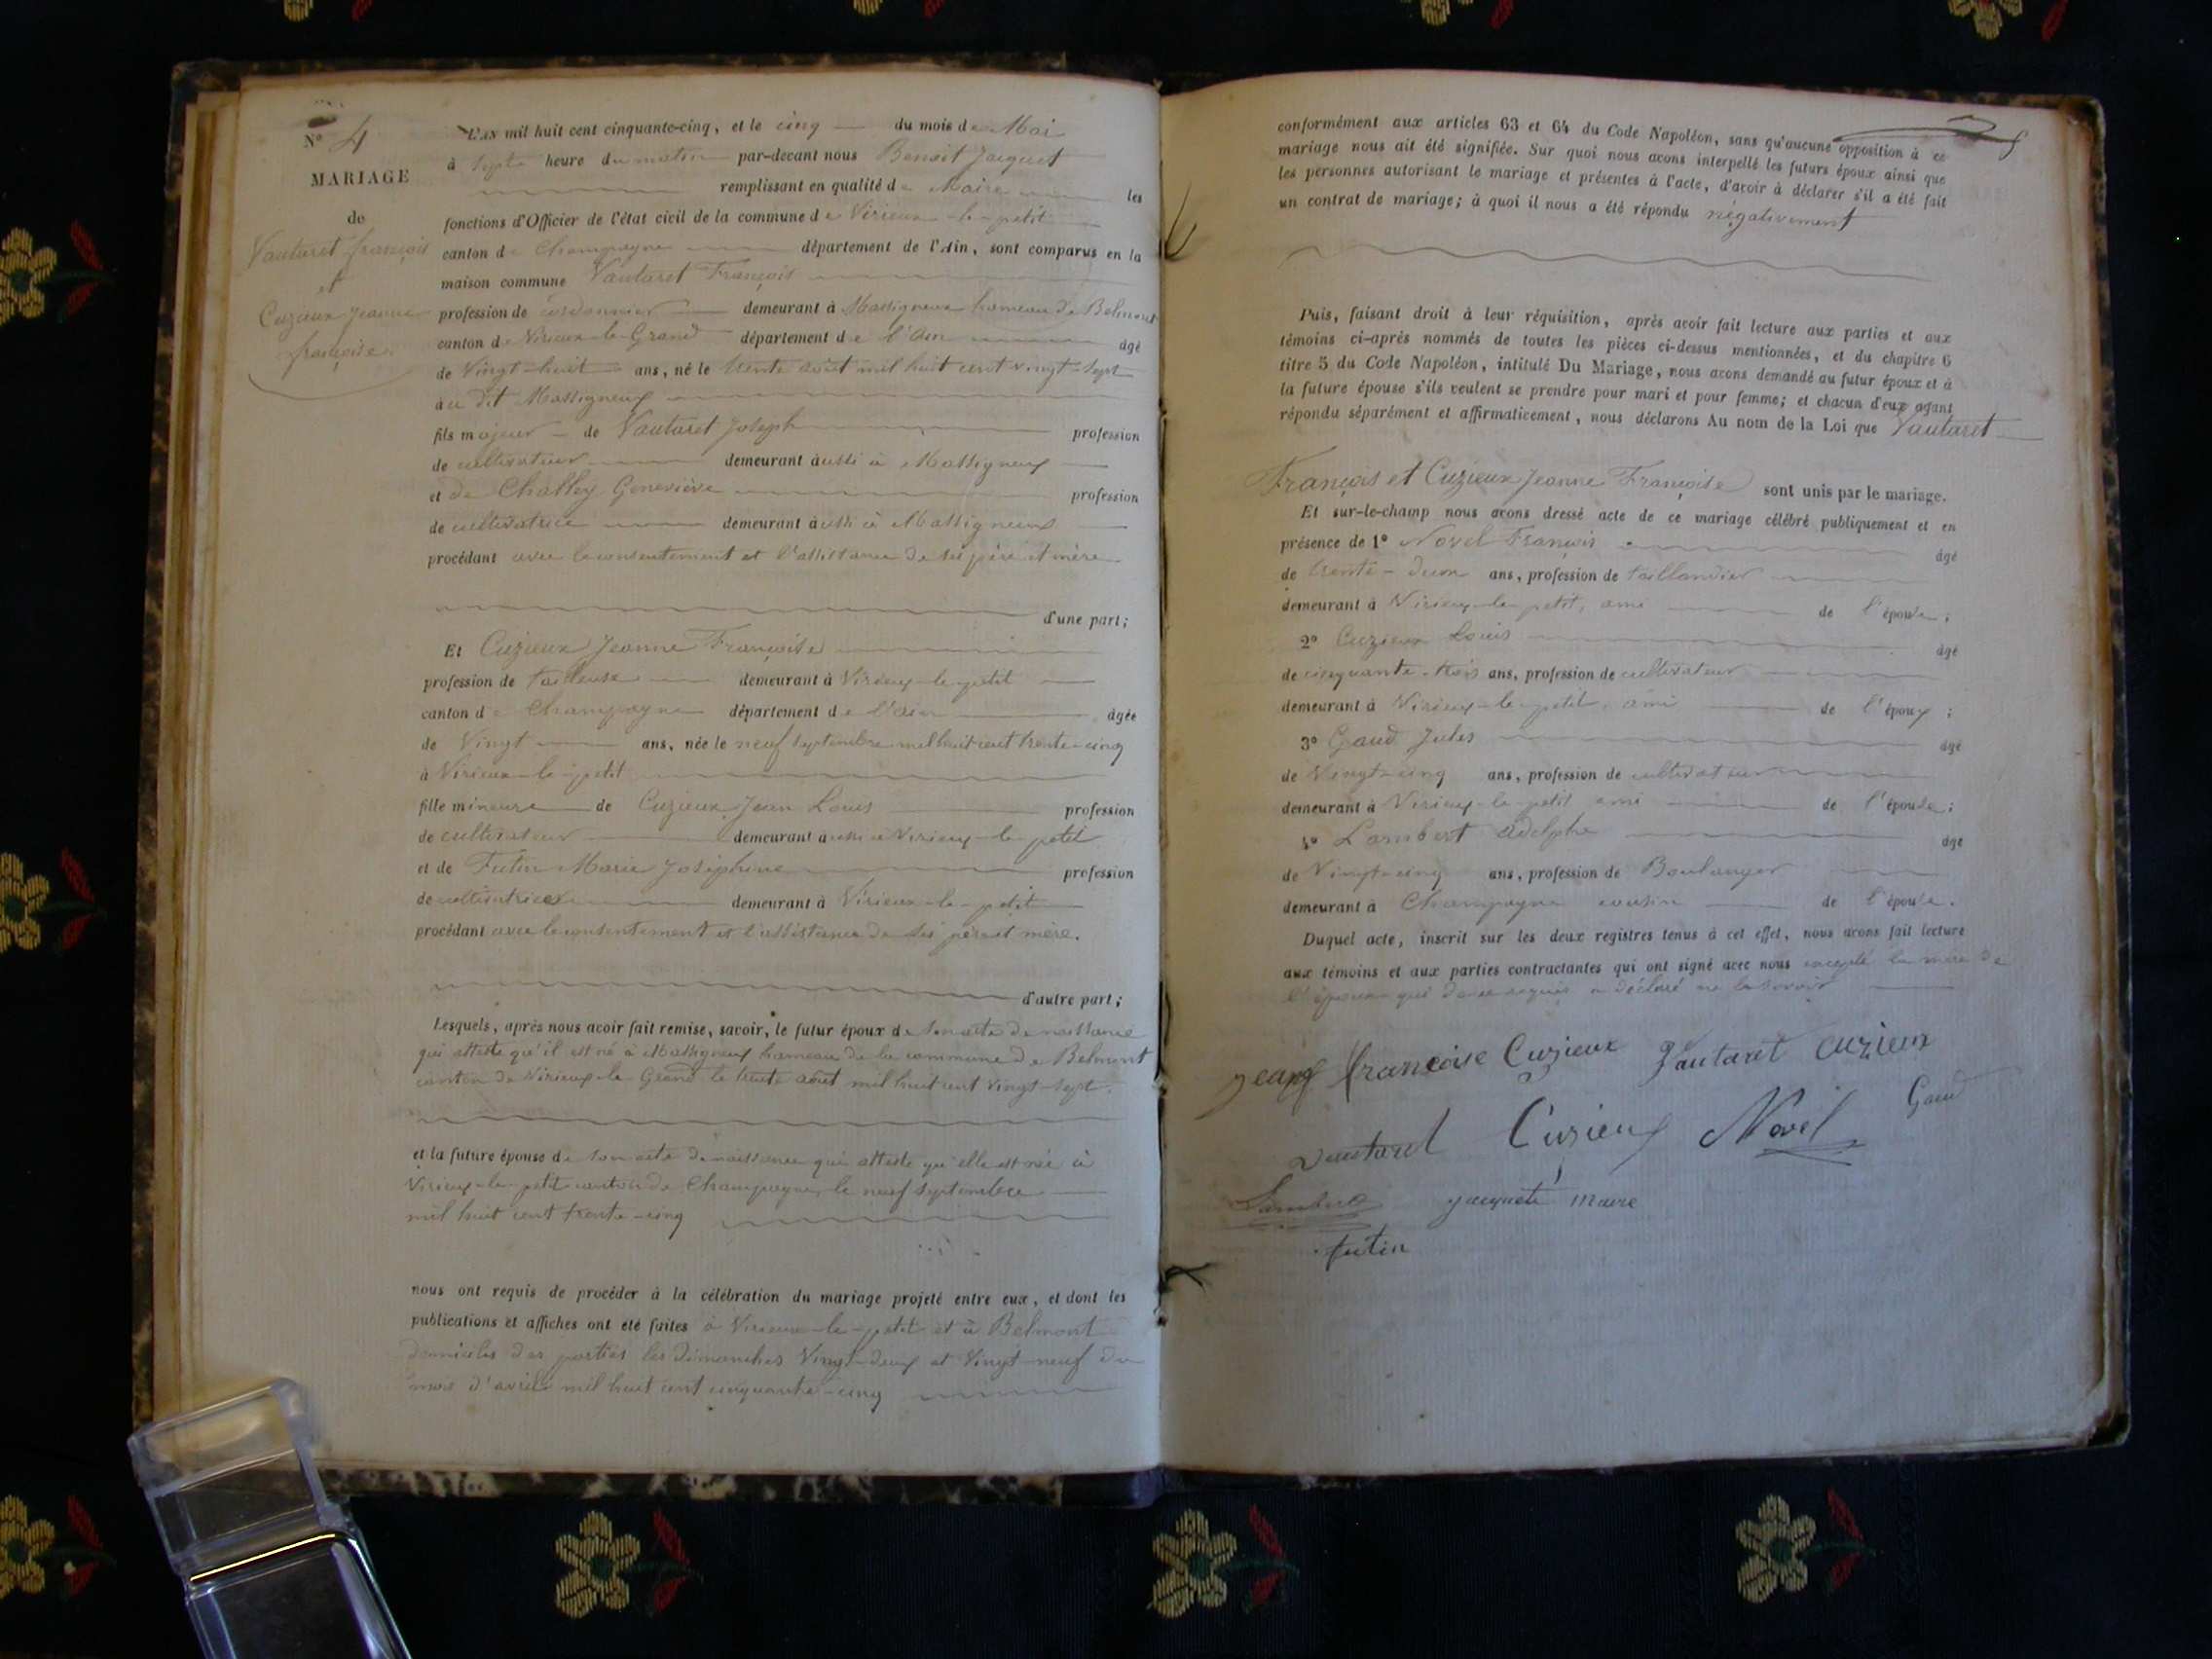 N° 4
MARIAGE
de
Vautaret françois
et
Cuzieux Jeanne
françoise
L'AN mil huit cent cinquante-cinq, et le cinq du mois de Mai
à sept heure du matin par-devant nous Benoit Jacquet
remplissant en qualité de Maire les
fonctions d'Officier de l'état civil de la commune de Virieux-le-petit
canton de Champagne département de l'Ain, sont comparus en la
maison commune Vautaret François
profession de cordonnier demeurant à Massigneux hameau de Belmont
canton de Virieux-le-Grand département de l'ain âgé
de Vingt-huit ans, né le trente août mil huit cent vingt-sept
au dit Massigneux
fils majeur de Vautaret Joseph profession
de cultivateur demeurant aussi à Massigneux
et de Challey Geneviève profession
de cultivatrice demeurant aussi à Massigneux
procédant avec le consentement et l'assistance de ses père et mère
d'une part;
Et Cuzieux Jeanne Françoise
profession de tailleuse demeurant à Virieux-le-petit
canton de Champagne département de l'ain âgée
de Vingt ans, née le neuf septembre mil huit cent trente-cinq
à Virieux-le-petit
fille mineure de Cuzieux Jean Louis profession
de cultivateur demeurant aussi à Virieux-le-petit
et de Futin Marie Joséphine profession
de cultivatrice demeurant à Virieux-le-petit
procédant avec le consentement et l'assistance de ses père et mère.
d'autre part;
Lesquels, après nous avoir fait remise, savoir, le futur époux de son acte de naissance
qui atteste qu'il est né à Massigneux hameau de la commune de Belmont
canton de Virieux-le-Grand le trente août mil huit cent vingt-sept.
et la future épouse de son acte de naissance qui atteste qu'elle est née à
Virieux-le-petit canton de Champagne, le neuf septembre
mil huit cent trente-cinq
nous ont requis de procéder à la célébration du mariage projeté entre eux, et dont les
publications et affiches ont été faites à Virieux-le-petit et à Belmont
domiciles des parties les dimanches Vingt-deux et Vingt-neuf du
mois d'avril mil huit cent cinquante-cinq
conformément aux articles 63 et 64 du Code Napoléon, sans qu'aucune opposition à ce
mariage nous ait été signifiée. Sur quoi nous avons interpellé les futurs époux ainsi que
les personnes autorisant le mariage et présentes à l'acte, d'avoir à déclarer s'il a été fait
un contrat de mariage; à quoi il nous a été répondu négativement
Puis, faisant droit à leur réquisition, après avoir fait lecture aux parties et aux
témoins ci-après nommés de toutes les pièces ci-dessus mentionnées, et du chapitre 6
titre 5 du Code Napoléon, intitulé Du Mariage, nous avons demandé au futur époux et à
la future épouse s'ils veulent se prendre pour mari et pour femme; et chacun d'eux ayant
répondu séparément et affirmativement, nous déclarons Au nom de la Loi que Vautaret
François et Cuzieux Jeanne Françoise sont unis par le mariage.
Et sur-le-champ nous avons dressé acte de ce mariage célébré publiquement et en
présence de 1° Novel François âgé
de trente-deux ans, profession de taillandier
demeurant à Virieux-le-petit, ami de l'épouse;
2° Cuzieux Louis âgé
de cinquante-trois ans, profession de cultivateur
demeurant à Virieux-le-petit, ami de l'époux;
3° Gaud Jules âgé
de Vingt-cinq ans, profession de cultivateur
demeurant à Virieux-le-petit ami de l'épouse;
4° Lambert adolphe âgé
de Vingt-cinq ans, profession de Boulanger
demeurant à Champagne cousin de l'épouse.
Duquel acte, inscrit sur les deux registres tenus à cet effet, nous avons fait lecture
aux témoins et aux parties contractantes qui ont signé avec nous excepté la mère de
l'époux qui de ce requis a déclaré ne le savoir
jeanne francoise Cuzieux Vautaret cuzieux
Vautaret Cuzieux Novel Gaud
Lambert jacquet maire
futin